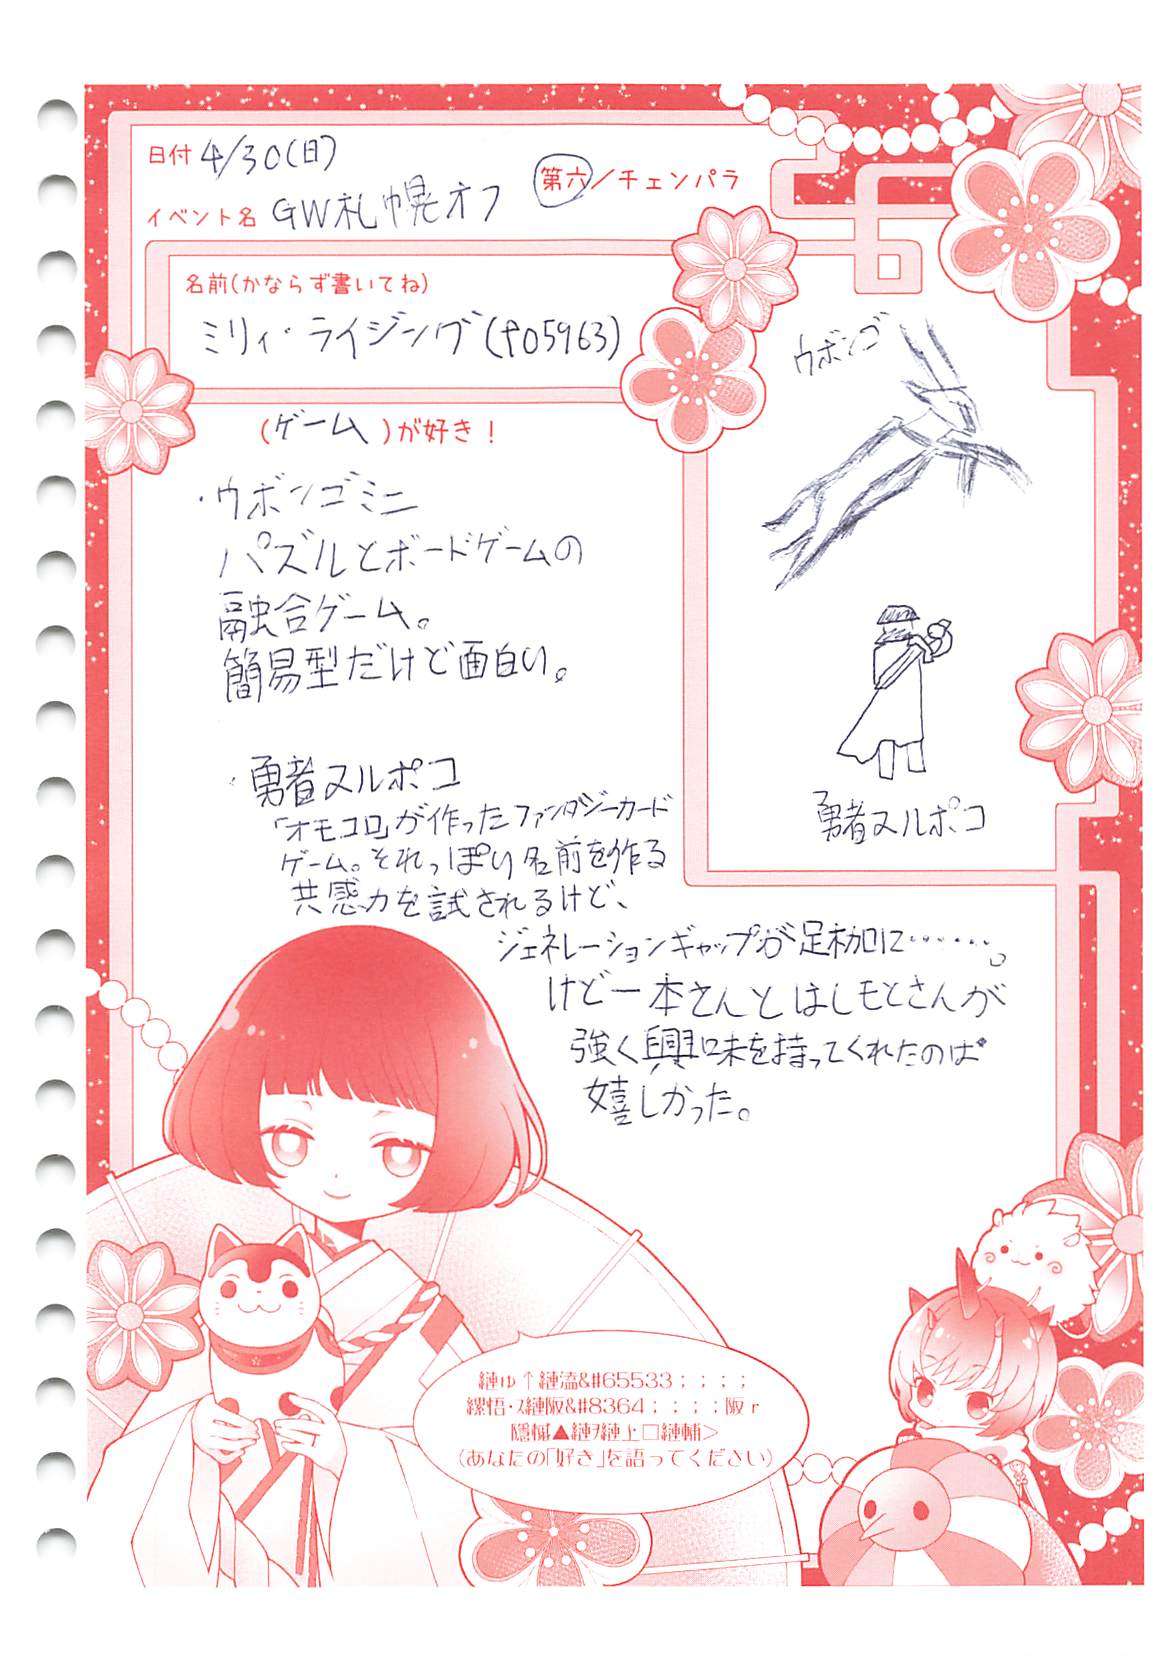 日付 4/30(日)
第六/チェンパラ
イベント名 GW札幌オフ
名前(かならず書いてね)
ミリィ・ライジング(p05963)
ウボンゴ
(ゲーム)が好き!
・ウボンゴミニ
パズルとボードゲームの
融合ゲーム。
簡易型だけど面白い。
勇者ヌルポコ
・勇者ヌルポコ
「オモコロ」が作ったファンタジーカード
ゲーム。それっぽい名前を作る
共感力を試されるけど、
ジェネレーションギャップが足枷に……。
けど一本さんとはしもとさんが
強く興味を持ってくれたのは
嬉しかった。
縺ゅ↑縺溘&#65533;;;;
縲悟・ｽ縺阪&#8364;;;;;阪ｒ
隱槭▲縺ｦ縺上□縺輔>
(あなたの「好き」を語ってください)